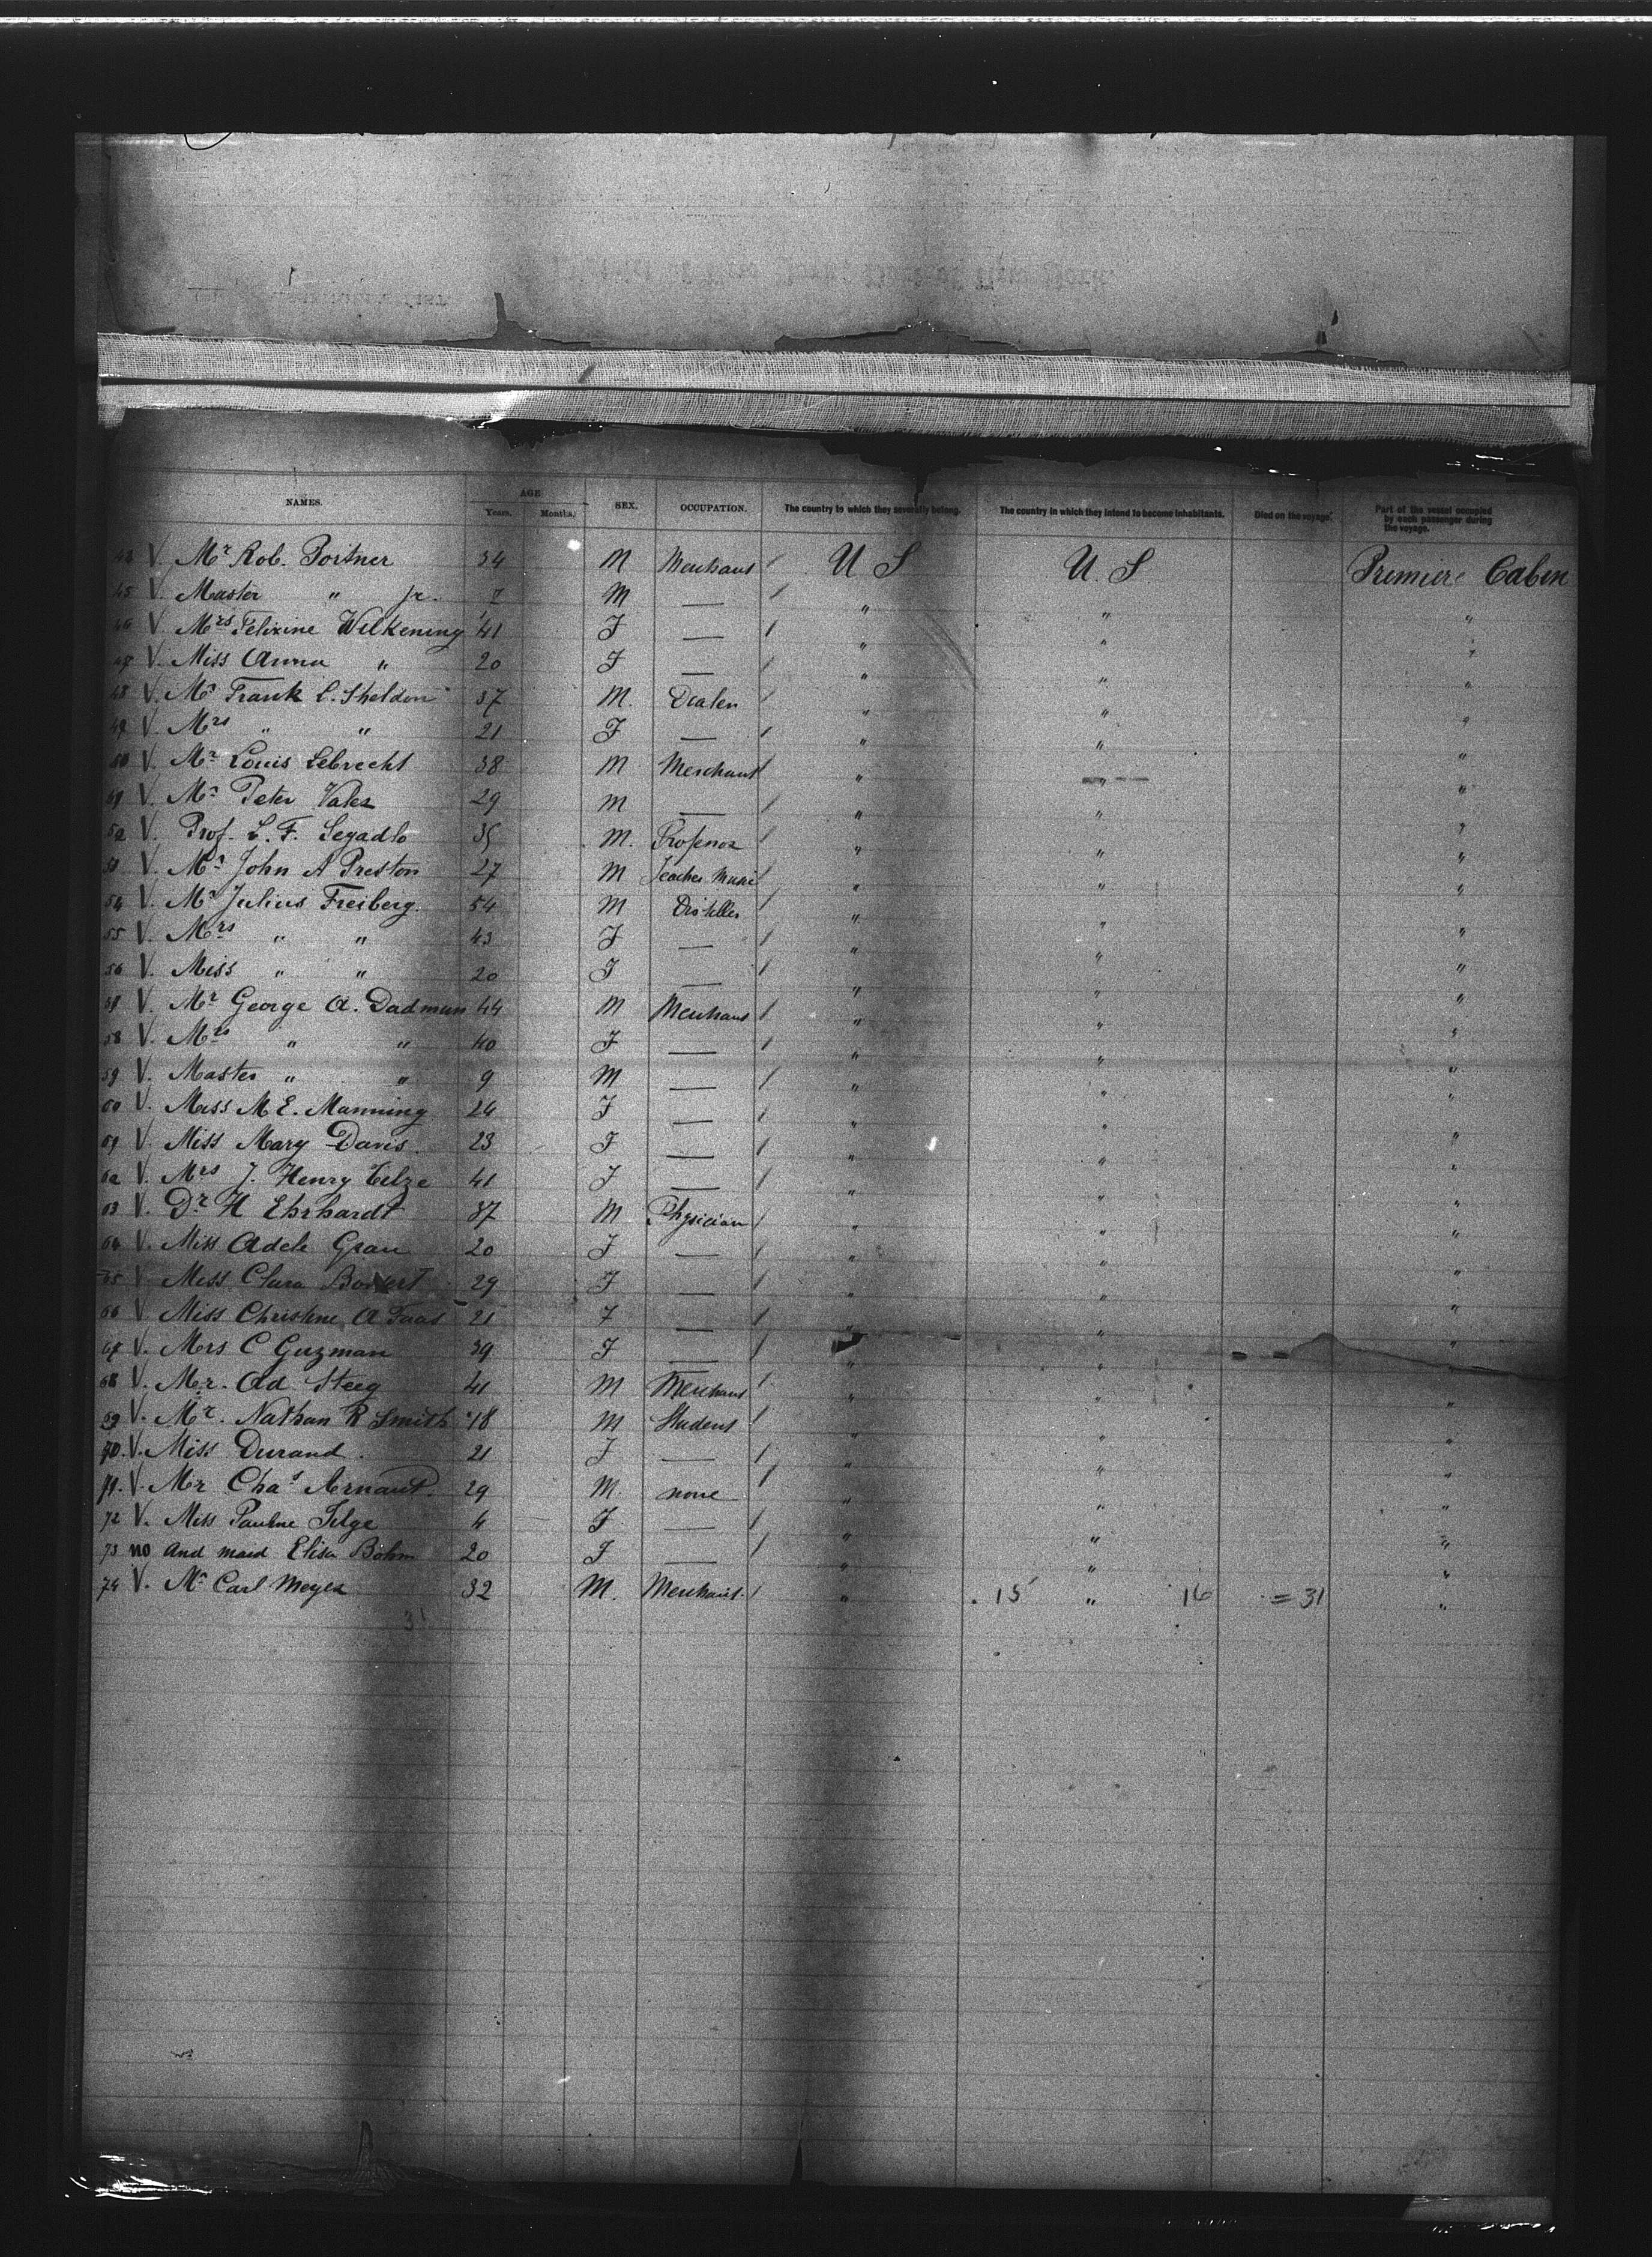 NAMES. AGE Years. Months. SEX. OCCUPATION. The country to which they severally belong. The country in which they intend to become inhabitants. Died on the voyage. Part of the vessel occupied by each passenger during the voyage.
V. Mr Rob. Portner 34 M Merchant / U S U. S. Premiere Cabin
45 V. Master " jr. 7 M — / " " "
46 V. Mrs Wilkening 41 F — / " " "
47 V. Miss Anna " 20 F — / " " "
48 V. Mr Frank C. Sheldon 37 M. Dealer / " " "
49 V. Mrs " " 21 F — / " " "
50 V. Mr Louis Lebrecht 38 M Merchant / " " "
51 V. Mr Peter 29 M — / " " "
52 V. Prof. L. F. 35 M. Professor / " " "
53 V. Mr John A Preston 27 M Teacher Music / " " "
54 V. Mr Julius Freiberg. 54 M Distiller / " " "
55 V. Mrs " " 43 F — / " " "
56 V. Miss " " 20 F — / " " "
57 V. Mr George A. Dadmun 44 M Merchant / " " "
58 V. Mrs " " 40 F — / " " "
59 V. Master " " 9 M — / " " "
60 V. Miss M E. Manning 24 F — / " " "
61 V. Miss Mary Davis. 23 F — / " " "
62 V. Mrs J. Henry 41 F — / " " "
63 V. Dr H Ehrhardt 37 M Physician / " " "
64 V. Miss Adele Grau 20 F — / " " "
65 V Miss Clara 29 F — / " " "
66 V. Miss Christine A 21 F — / " " "
67 V. Mrs C Guzman 39 F — / " " "
68 V. Mr. Ad. Steeg 41 M Merchant / " " "
69 V. Mr. Nathan R Smith 18 M Student / " " "
70. V. Miss Durand. 21 F — / " " "
71. V. Mr Chas Arnaud. 29 M. none / " " "
72 V. Miss Pauline 4 F — / " " "
73 no and maid Elisa Bohm 20 F — / " " "
74 V. Mr Carl Meyer 32 M. Merchant. / " 15 " 16 = 31 "
31